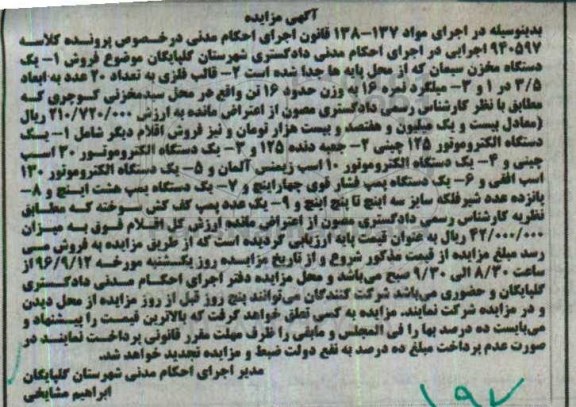 آگهی مزایده
بدینوسیله در اجرای مواد ۱۳۷-۱۳۸ قانون اجرای احکام مدنی درخصوص پرونده کلاسه
۹۴۰۵۹۷ اجرایی در اجرای احکام مدنی دادگستری شهرستان گلپایگان موضوع فروش ۱- یک
دستگاه مخزن سیمان که از محل پایه ها جدا شده است ۲- قالب فلزی به تعداد ۲۰ عدد به ابعاد
۳/۵ در ۱ و ۳- میلگرد نمره ۱۶ به وزن حدود ۱۶ تن واقع در محل سیدمخزنی گوچری که
مطابق با نظر کارشناس رسمی دادگستری مصون از اعتراض مانده به ارزش ۲۱۰/۷۲۰/۰۰۰ ریال
(معادل بیست و یک میلیون و هفتصد و بیست هزار تومان و نیز فروش اقلام دیگر شامل ۱- یک
دستگاه الکتروموتور ۱۲۵ چینی ۲- جعبه دنده ۱۲۵ و ۳- یک دستگاه الکتروموتور ۳۰ اسب
چینی و ۴- یک دستگاه الکتروموتور ۱۰ اسب زیمنس آلمان و ۵- یک دستگاه الکتروموتور ۱۳۰
اسب افقی و ۶- یک دستگاه پمپ فشار قوی چهاراینچ و ۷- یک دستگاه پمپ هشت اینچ و ۸-
پانزده عدد شیرفلکه سایز سه اینچ تا پنج اینچ و ۹- یک عدد پمپ کف کش سوخته که مطابق
نظریه کارشناس رسمی دادگستری مصون از اعتراض مانده ارزش کل اقلام فوق به میزان
۴۲/۰۰۰/۰۰۰ ریال به عنوان قیمت پایه ارزیابی گردیده است که از طریق مزایده به فروش می
رسد مبلغ مزایده از قیمت مذکور شروع و از تاریخ مزایده روز یکشنبه مورخه ۹۶/۹/۱۲ از
ساعت ۸/۳۰ الی ۹/۳۰ صبح می‌باشد و محل مزایده دفتر اجرای احکام مدنی دادگستری
گلپایگان و حضوری می‌باشد شرکت کنندگان می‌توانند پنج روز قبل از روز مزایده از محل دیدن
و در مزایده شرکت نمایند. مزایده به کسی تعلق خواهد گرفت که بالاترین قیمت را پیشنهاد و
می‌بایست ده درصد بها را فی المجلس و مابقی را ظرف مهلت مقرر قانونی پرداخت نمایند در
صورت عدم پرداخت مبلغ ده درصد به نفع دولت ضبط و مزایده تجدید خواهد شد.
مدیر اجرای احکام مدنی شهرستان گلپایگان
ابراهیم مشایخی